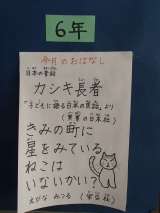 6年
今月のおはなし
日本の昔話
カシキ長者
"子どもに語る日本の昔話"より
きみの町に
星をみている
ねこは
いないかい?
えびな みつる